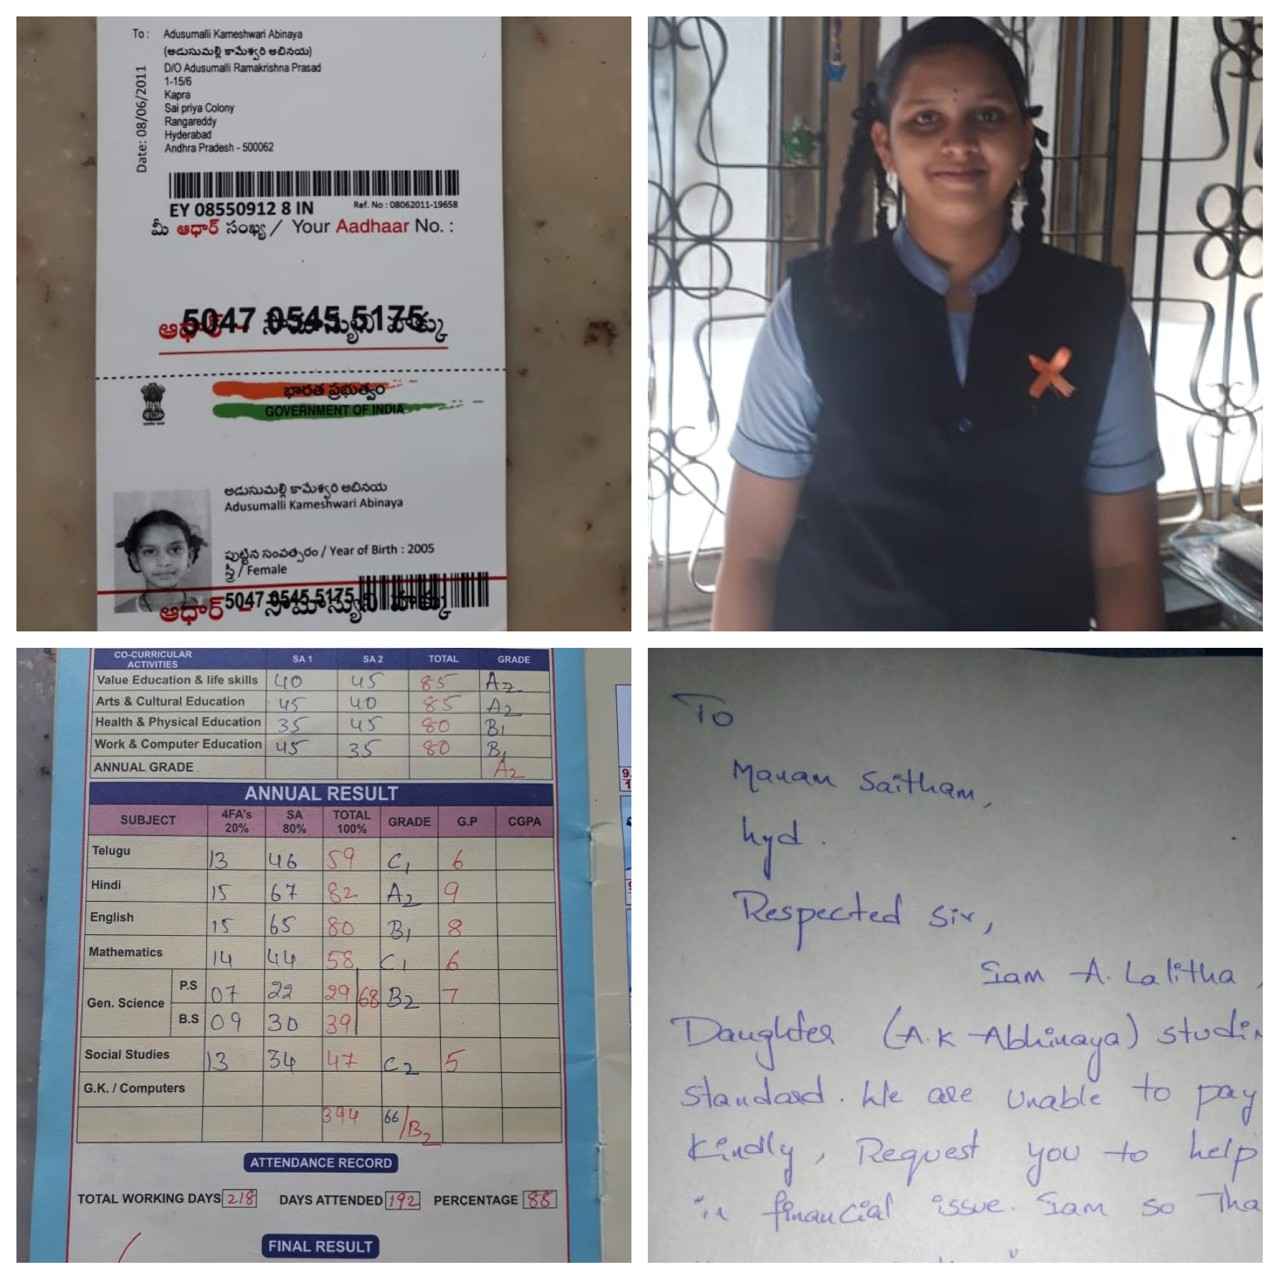 To :
Adusumalli Kameshwari Abinaya
(అడుసుమల్లి కామేశ్వరి అబినయ)
D/O Adusumalli Ramakrishna Prasad
1-15/6
Kapra
Sai priya Colony
Rangareddy
Hyderabad
Andhra Pradesh - 500062
Date: 08/06/2011
EY 08550912 8 IN
Ref. No : 08062011-19658
మీ ఆధార్ సంఖ్య / Your Aadhaar No. :
5047 0545 5175
ఆధార్ - సామాన్యుని హక్కు
భారత ప్రభుత్వం
GOVERNMENT OF INDIA
అడుసుమల్లి కామేశ్వరి అబినయ
Adusumalli Kameshwari Abinaya
పుట్టిన సంవత్సరం / Year of Birth : 2005
స్త్రీ / Female
5047 0545 5175
ఆధార్ - సామాన్యుని హక్కు
CO-CURRICULAR ACTIVITIES SA 1 SA 2 TOTAL GRADE
Value Education & life skills 40 45 85 A2
Arts & Cultural Education 45 40 85 A2
Health & Physical Education 35 45 80 B1
Work & Computer Education 45 35 80 B1
ANNUAL GRADE A2
ANNUAL RESULT
SUBJECT 4FA's 20% SA 80% TOTAL 100% GRADE G.P CGPA
Telugu 13 46 59 C1 6
Hindi 15 67 82 A2 9
English 15 65 80 B1 8
Mathematics 14 44 58 C1 6
Gen. Science P.S 07 22 29 68 B2 7
B.S 09 30 39
Social Studies 13 34 47 C2 5
G.K. / Computers
394 66/B2
ATTENDANCE RECORD
TOTAL WORKING DAYS 218 DAYS ATTENDED 192 PERCENTAGE 88
FINAL RESULT
To
Manam Saitham,
hyd.
Respected Sir,
Iam A. Lalitha,
Daughter (A.K Abhinaya) studin
standard. We are unable to pay
kindly, Request you to help
in financial issue. Iam so Tha